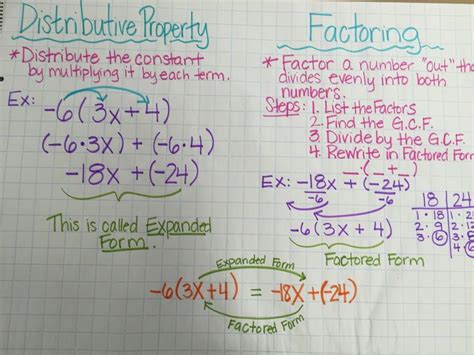 Distributive Property
*Distribute the constant
by multiplying it by each term.
Ex: -6(3x+4)
(-6·3x)+(-6·4)
-18x + (-24)
This is called Expanded
Form.
Factoring
* Factor a number "out" tha
divides evenly into both
numbers.
Steps: 1. List the Factors
2. Find the G.C.F.
3. Divide by the G.C.F.
4. Rewrite in Factored Form
_(_+_)
Ex: -18x + (-24)
-6 -6
-6(3x + 4)
Factored Form
18 24
1·18 1·2
2·9 2·1
3·6 3·
4·6
Expanded Form
-6(3x+4) = -18x+(-24)
Factored Form